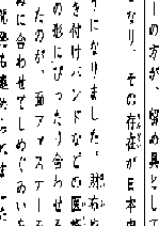 ーの方が、留め具として
なり、その存在が日本中
うになりました。財布や
き付けバンドなどの医
の形にぴったり合わせる
たのが、面ファスナー
に合わせてしめぐあいを